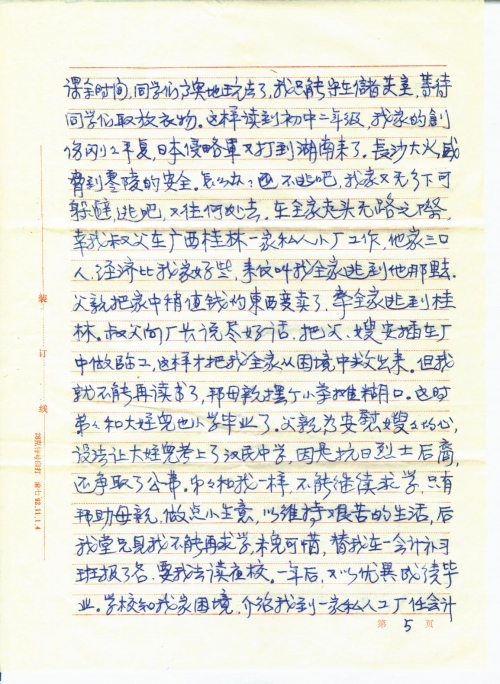 课余时间,同学们高兴地玩去了,我只能守在储藏室,等待
同学们取放衣物。这样读到初中二年级,我家的創
伤刚平复,日本侵略軍又打到湖南来了。長沙大火,威
脅到零陵的安全,怎么办?不逃吧,我家又无乡下可
躲避,逃吧,又往何处去。在全家走头无路之際,
幸我叔父在广西桂林一家私人小厂工作,他家三口
人,经济比我家好些,来信叫我全家逃到他那里去.
父親把家中稍值钱的東西变卖了,率全家逃到桂
林。叔父向厂长说尽好话,把父、嫂安插在厂
中做临工,这样才把我全家从困境中救出来。但我
就不能再读书了,帮母親摆个小学摊糊口。这时
弟弟和大姪兒也小学毕业了。父親为安慰嫂嫂的心,
设法让大姪兒考上了汉民中学,因是抗日烈士后裔,
还争取了公费。弟弟和我一样,不能继续求学,只有
帮助母親,做点小生意,以维持艰苦的生活,后
我堂兄見我不能再求学,未免可惜,替我在一会计补习
班报了名,要我去读夜校。一年后,以优異成绩毕
业。学校知我家困境,介绍我到一家私人工厂任会计
装订线
第 5 页